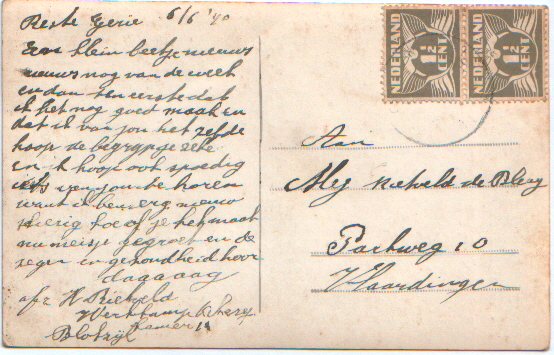 Beste Gerie 6/6 '40
Een klein beetje nieuws
nieuws nog van de week
en dan ten eerste dat
ik het nog goed maak en
dat ik van jou het zelfde
hoop de
en ik hoop ook spoedig
iets van jou te horen
want ik ben erg nieuw
schierig hoe of je het maakt
nu meisje gegroet en de
zegen in gezondheid hoor
dagaaag
afz H Rietveld
Werkkamp
Kamer 14
Blokzijl
NEDERLAND 1½ CENT
NEDERLAND 1½ CENT
Aan
Mej Rietveld de
Parkweg 10
Vlaardingen